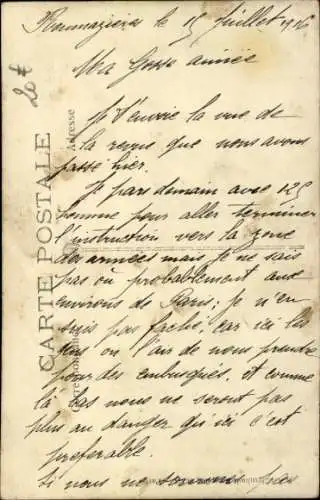 Roumazières le 15 Juillet 1916
Ma Gosse aimée
Je t'envoie la vue de
la revue que nous avons
passé hier.
Je pars demain avec 125
homme pour aller terminer
l'instruction vers la zone
des armées mais je ne sais
pas où probablement aux
environs de Paris; je n'en
suis pas faché, car ici les
gens on l'air de nous prendre
pour des embusqués, et comme
là bas nous ne seront pas
plus au danger qu'ici c'est
préférable.
Si nous ne sommes pas
CARTE POSTALE
Adresse
Correspondance
20 €